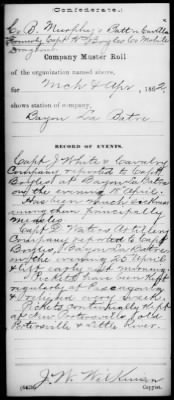 (Confederate.)
Co B. Murphy's Battn Cavalry
Formerly Capt
Dragoons
Company Muster Roll
of the organization named above,
for Mch & Apr, 1862,
shows station of company,
Bayou La Batre
RECORD OF EVENTS.
Capt J. White's Cavalry
Company reported to Capt
Boyles at Bayou La Batre
on the evening April
Has been much sickness
among them principally
Measles
Capt Waters Artillery
Company reported to Capt
Boyles, Bayou La Batre
on the evening 25 April
& left early next morning.
Pickets have been kept
regularly at Pascagoula
very sick.
Pickets continually kept
at
Portersville & Little River.
J. W. Wilkinson
Copyist.